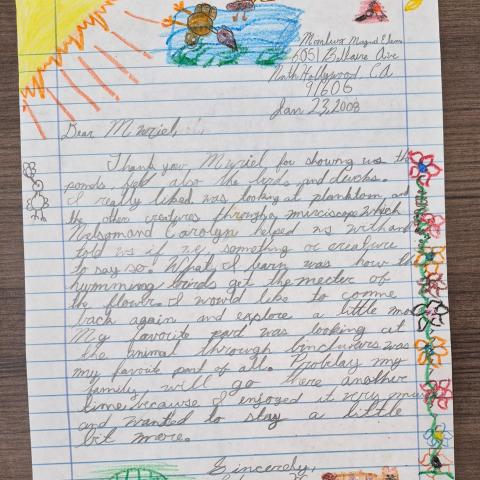 Monlux Magnet Elem
6051 Bellaire Ave
North Hollywood, CA
91606
Jan 23, 2008
Dear Muriel,
Thank you Muriel for showing us the
ponds, fish also the birds and ducks.
I really liked was looking at planktom and
the other creatures through a murciscope which
Nelson and Carolyn helped us with and
told us if we something or creature
to say so. What I learn was how the
hymming birds get the necter of
the flower. I would like to comme
back again and explore a little more
My favorite part was looking at
the animal through binclurars was
my favoite part of all. Problay my
family, will go there another
time because I enjoyed it very much
and wanted to stay a little
bit more.
Sincerely,